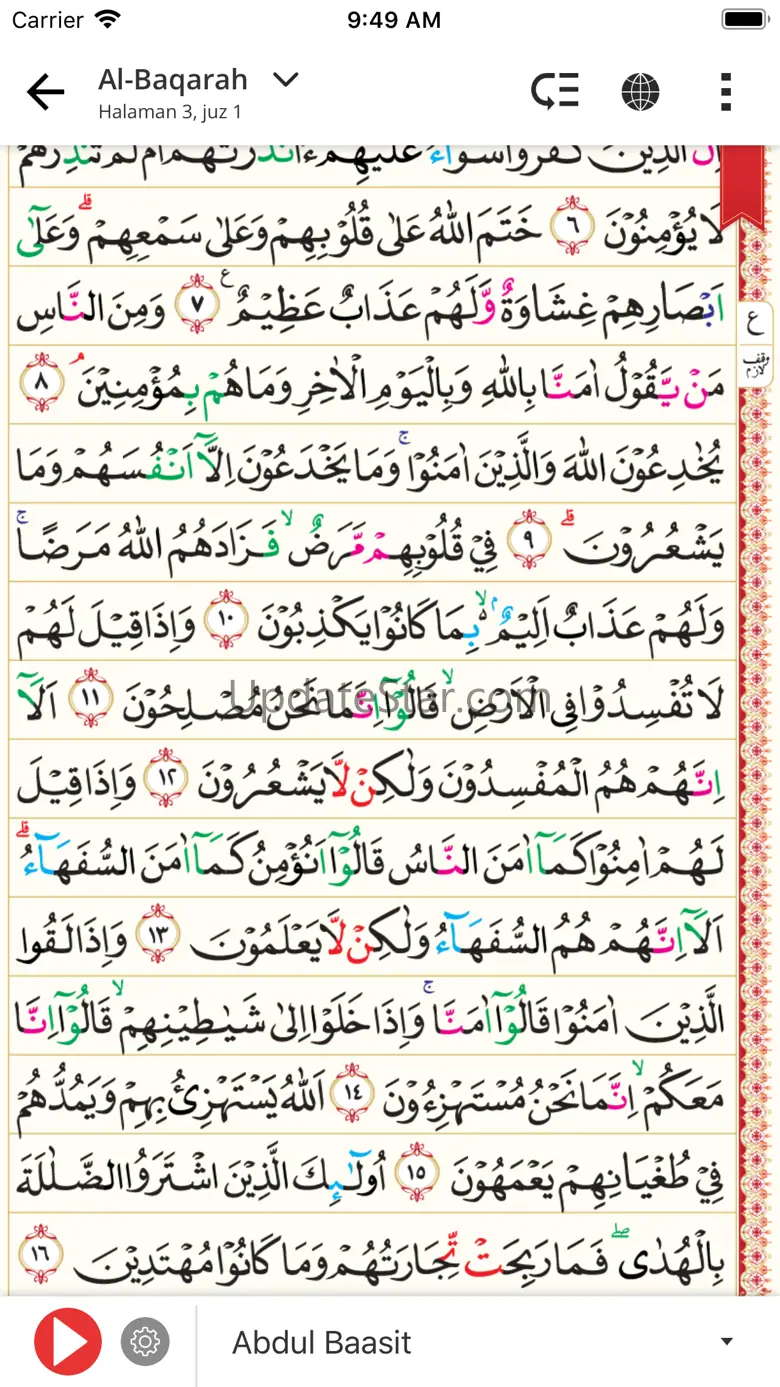 Carrier 9:49 AM
Al-Baqarah
Halaman 3, juz 1
اِنَّ الَّذِيْنَ كَفَرُوْا سَوَاۤءٌ عَلَيْهِمْ ءَاَنْذَرْتَهُمْ اَمْ لَمْ تُنْذِرْهُمْ
لَا يُؤْمِنُوْنَ ٦ خَتَمَ اللّٰهُ عَلٰى قُلُوْبِهِمْ وَعَلٰى سَمْعِهِمْ ۗ وَعَلٰٓى
اَبْصَارِهِمْ غِشَاوَةٌ وَّلَهُمْ عَذَابٌ عَظِيْمٌ ࣖ ٧ وَمِنَ النَّاسِ
ع
مَنْ يَّقُوْلُ اٰمَنَّا بِاللّٰهِ وَبِالْيَوْمِ الْاٰخِرِ وَمَا هُمْ بِمُؤْمِنِيْنَ ۘ ٨
وقف لازم
يُخٰدِعُوْنَ اللّٰهَ وَالَّذِيْنَ اٰمَنُوْا ۚ وَمَا يَخْدَعُوْنَ اِلَّآ اَنْفُسَهُمْ وَمَا
يَشْعُرُوْنَ ۗ ٩ فِيْ قُلُوْبِهِمْ مَّرَضٌ ۙ فَزَادَهُمُ اللّٰهُ مَرَضًا ۚ
وَلَهُمْ عَذَابٌ اَلِيْمٌ ۢ ۙ بِمَا كَانُوْا يَكْذِبُوْنَ ١٠ وَاِذَا قِيْلَ لَهُمْ
لَا تُفْسِدُوْا فِى الْاَرْضِ ۙ قَالُوْٓا اِنَّمَا نَحْنُ مُصْلِحُوْنَ ١١ اَلَآ
UpdateStar.com
اِنَّهُمْ هُمُ الْمُفْسِدُوْنَ وَلٰكِنْ لَّا يَشْعُرُوْنَ ١٢ وَاِذَا قِيْلَ
لَهُمْ اٰمِنُوْا كَمَآ اٰمَنَ النَّاسُ قَالُوْٓا اَنُؤْمِنُ كَمَآ اٰمَنَ السُّفَهَاۤءُ ۗ
اَلَآ اِنَّهُمْ هُمُ السُّفَهَاۤءُ وَلٰكِنْ لَّا يَعْلَمُوْنَ ١٣ وَاِذَا لَقُوا
الَّذِيْنَ اٰمَنُوْا قَالُوْٓا اٰمَنَّا ۚ وَاِذَا خَلَوْا اِلٰى شَيٰطِيْنِهِمْ ۙ قَالُوْٓا اِنَّا
مَعَكُمْ ۙ اِنَّمَا نَحْنُ مُسْتَهْزِءُوْنَ ١٤ اَللّٰهُ يَسْتَهْزِئُ بِهِمْ وَيَمُدُّهُمْ
فِيْ طُغْيَانِهِمْ يَعْمَهُوْنَ ١٥ اُولٰۤىِٕكَ الَّذِيْنَ اشْتَرَوُا الضَّلٰلَةَ
بِالْهُدٰى ۖ فَمَا رَبِحَتْ تِّجَارَتُهُمْ وَمَا كَانُوْا مُهْتَدِيْنَ ١٦
Abdul Baasit